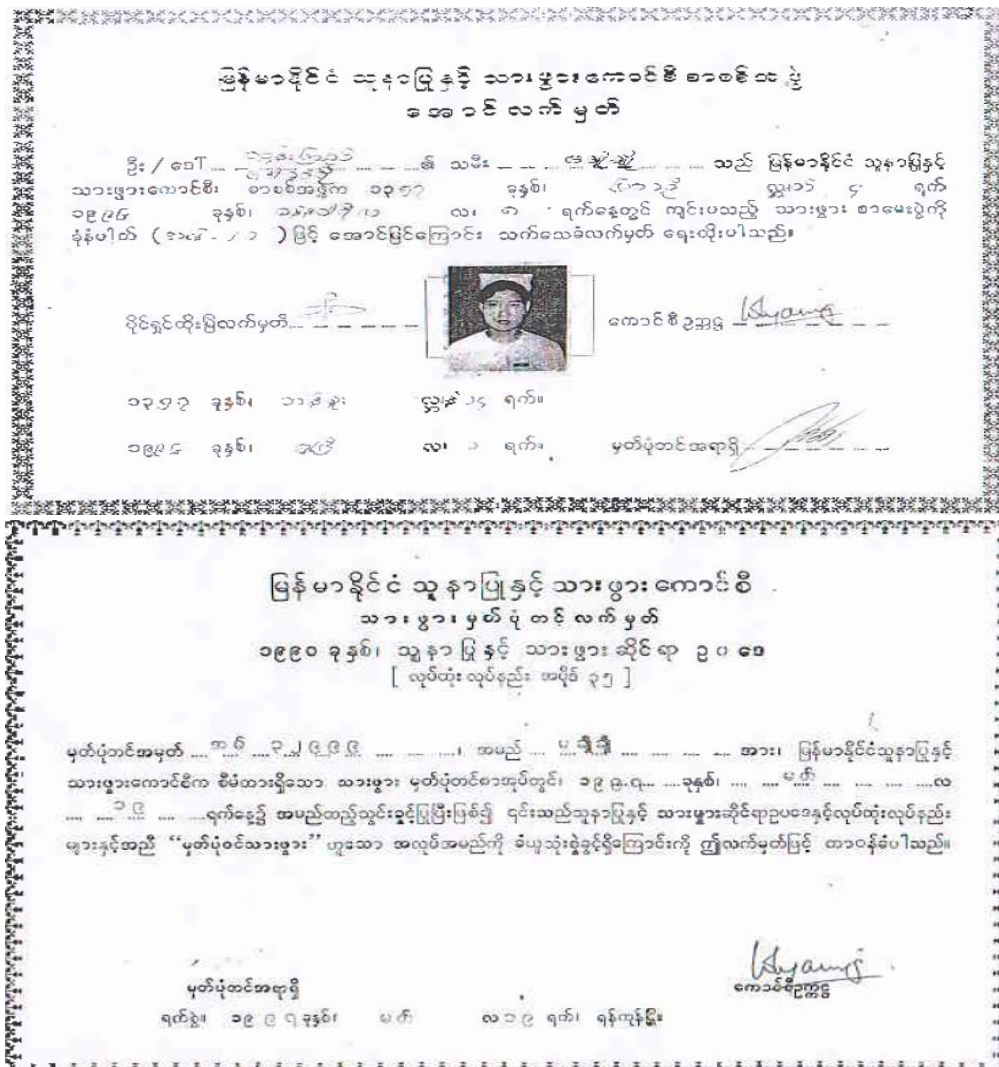 မြန်မာနိုင်ငံ သူနာပြုနှင့် သားဖွားကောင်စီ စာစစ်အဖွဲ့
အောင်လက်မှတ်
ဦး / ဒေါ် ၏ သမီး သည် မြန်မာနိုင်ငံ သူနာပြုနှင့်
သားဖွားကောင်စီး စာစစ်အဖွဲ့က ၁၃၅၇ ခုနှစ်၊ ၄ ရက်
၁၉၉၆ ခုနှစ်၊ လ၊ ရက်နေ့တွင် ကျင်းပသည့် သားဖွား စာမေးပွဲကို
ခုံနံပါတ် ( ) ဖြင့် အောင်မြင်ကြောင်း သက်သေခံလက်မှတ် ရေးထိုးပါသည်။
ပိုင်ရှင်ထိုးမြဲလက်မှတ်
ကောင်စီဥက္ကဋ္ဌ
ခုနှစ်၊ ရက်။
ခုနှစ်၊ လ၊ ရက်။ မှတ်ပုံတင်အရာရှိ
မြန်မာနိုင်ငံ သူနာပြုနှင့် သားဖွားကောင်စီ
သားဖွားမှတ်ပုံတင်လက်မှတ်
၁၉၉၀ ခုနှစ်၊ သူနာပြုနှင့် သားဖွားဆိုင်ရာ ဥပဒေ
[ လုပ်ထုံးလုပ်နည်း အပိုဒ် ၃၅ ]
မှတ်ပုံတင်အမှတ် ၊ အမည် မချိုချို အား၊ မြန်မာနိုင်ငံသူနာပြုနှင့်
သားဖွားကောင်စီက စီမံထားရှိသော သားဖွား မှတ်ပုံတင်စာအုပ်တွင်၊ ၁၉၉၇ ခုနှစ်၊ မတ် လ
၁၉ ရက်နေ့၌ အမည်ထည့်သွင်းခွင့်ပြုပြီးဖြစ်၍ ၎င်းသည်သူနာပြုနှင့် သားဖွားဆိုင်ရာဥပဒေနှင့်လုပ်ထုံးလုပ်နည်း
များနှင့်အညီ “မှတ်ပုံဝင်သားဖွား” ဟူသော အလုပ်အမည်ကို ခံယူသုံးစွဲခွင့်ရှိကြောင်းကို ဤလက်မှတ်ဖြင့် တာဝန်ခံပါသည်။
မှတ်ပုံတင်အရာရှိ ကောင်စီဥက္ကဋ္ဌ
ရက်စွဲ။ ၁၉၉၇ ခုနှစ်၊ မတ် လ ၁၉ ရက်၊ ရန်ကုန်မြို့။